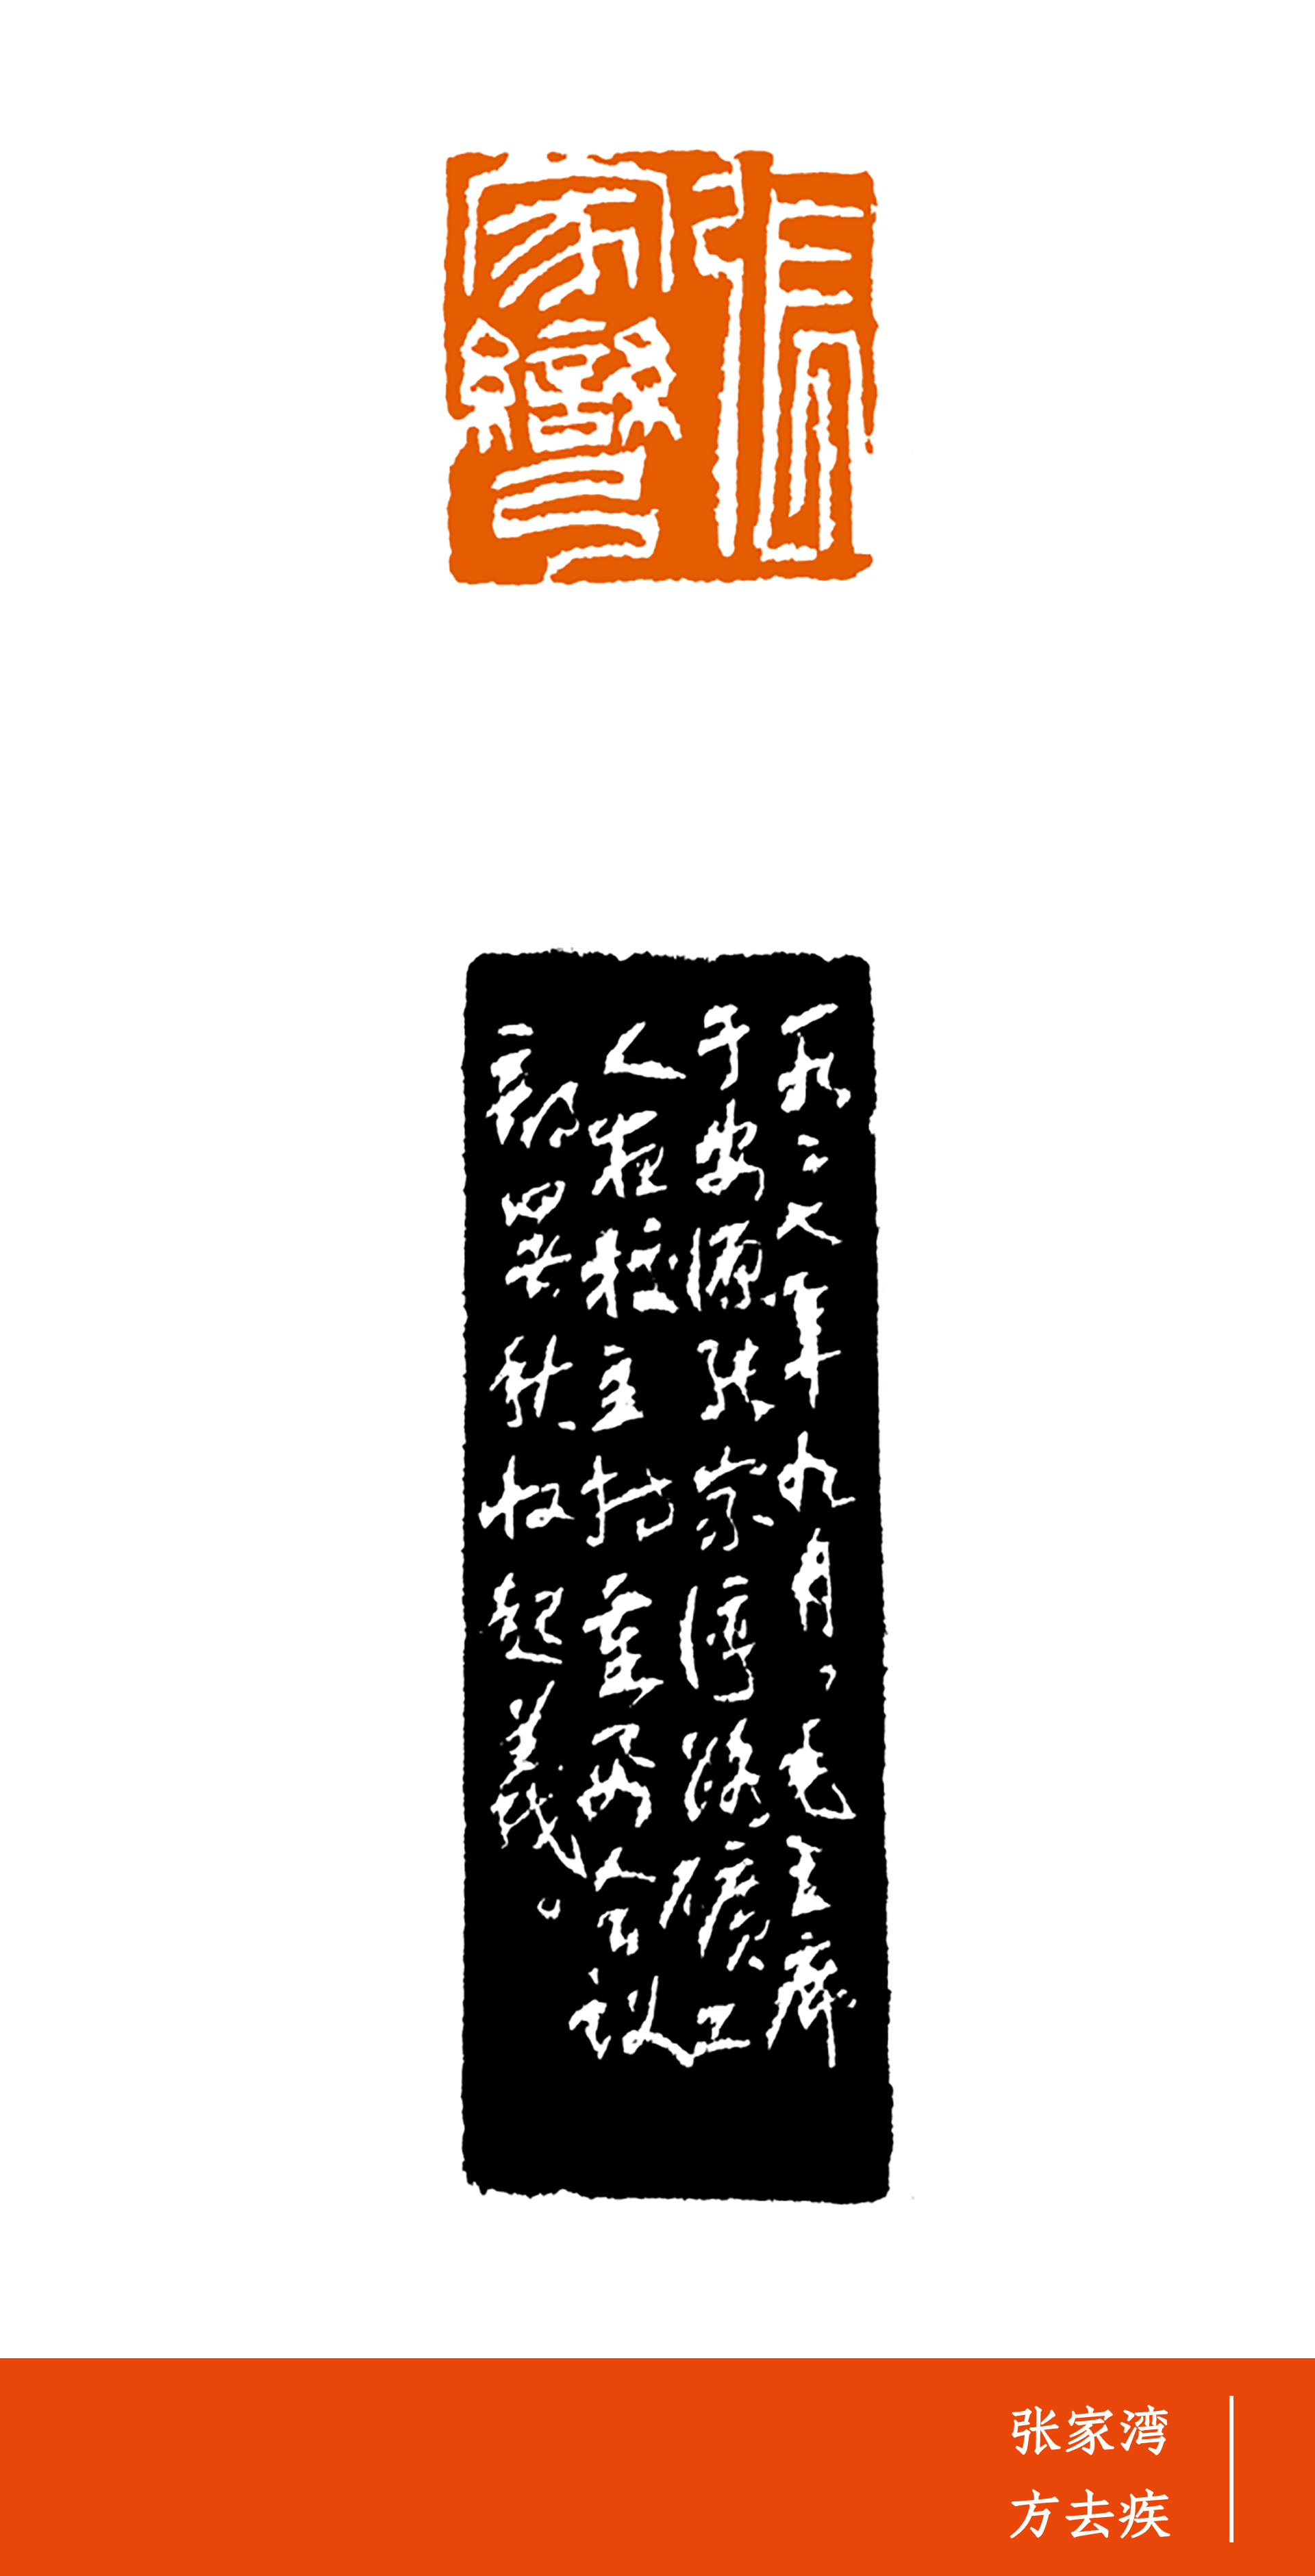 張
家彎
一九二七年九月，毛主席
于安源张家湾路礦工
人夜校主持重要会议
部署秋收起義。
张家湾
方去疾